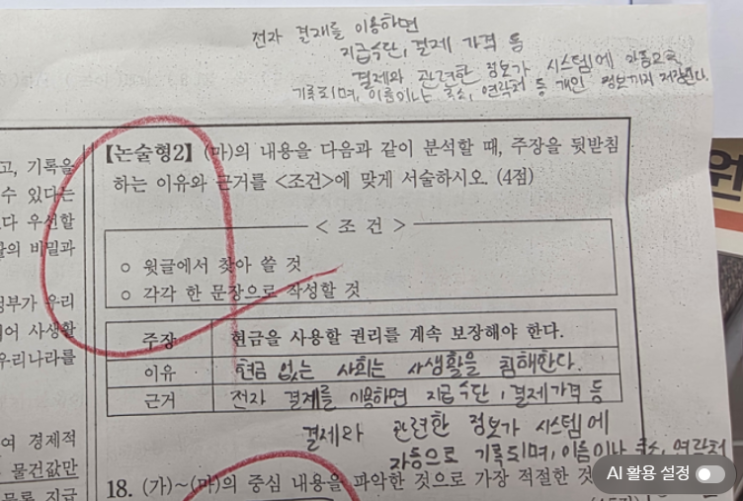 전자 결재를 이용하면
지급수단, 결제 가격 등
결제와 관련한 정보가 시스템에 자동으로
기록되며, 이름이나 주소, 연락처 등 개인 정보까지 저장된다.
고, 기록을
수 있다는
다 우선할
활의 비밀과
정부가 우리
어 사생활
우리나라를
【논술형2】 (마)의 내용을 다음과 같이 분석할 때, 주장을 뒷받침
하는 이유와 근거를 <조건>에 맞게 서술하시오. (4점)
< 조 건 >
○ 윗글에서 찾아 쓸 것
○ 각각 한 문장으로 작성할 것
주장 현금을 사용할 권리를 계속 보장해야 한다.
이유 현금 없는 사회는 사생활을 침해한다.
근거 전자 결재를 이용하면 지급수단, 결제가격 등
결제와 관련한 정보가 시스템에
자동으로 기록되며, 이름이나 주소, 연락처
여 경제적
물건값만
무를 지금
18. (가)~(마)의 중심 내용을 파악한 것으로 가장 적절한 것
원
AI 활용 설정